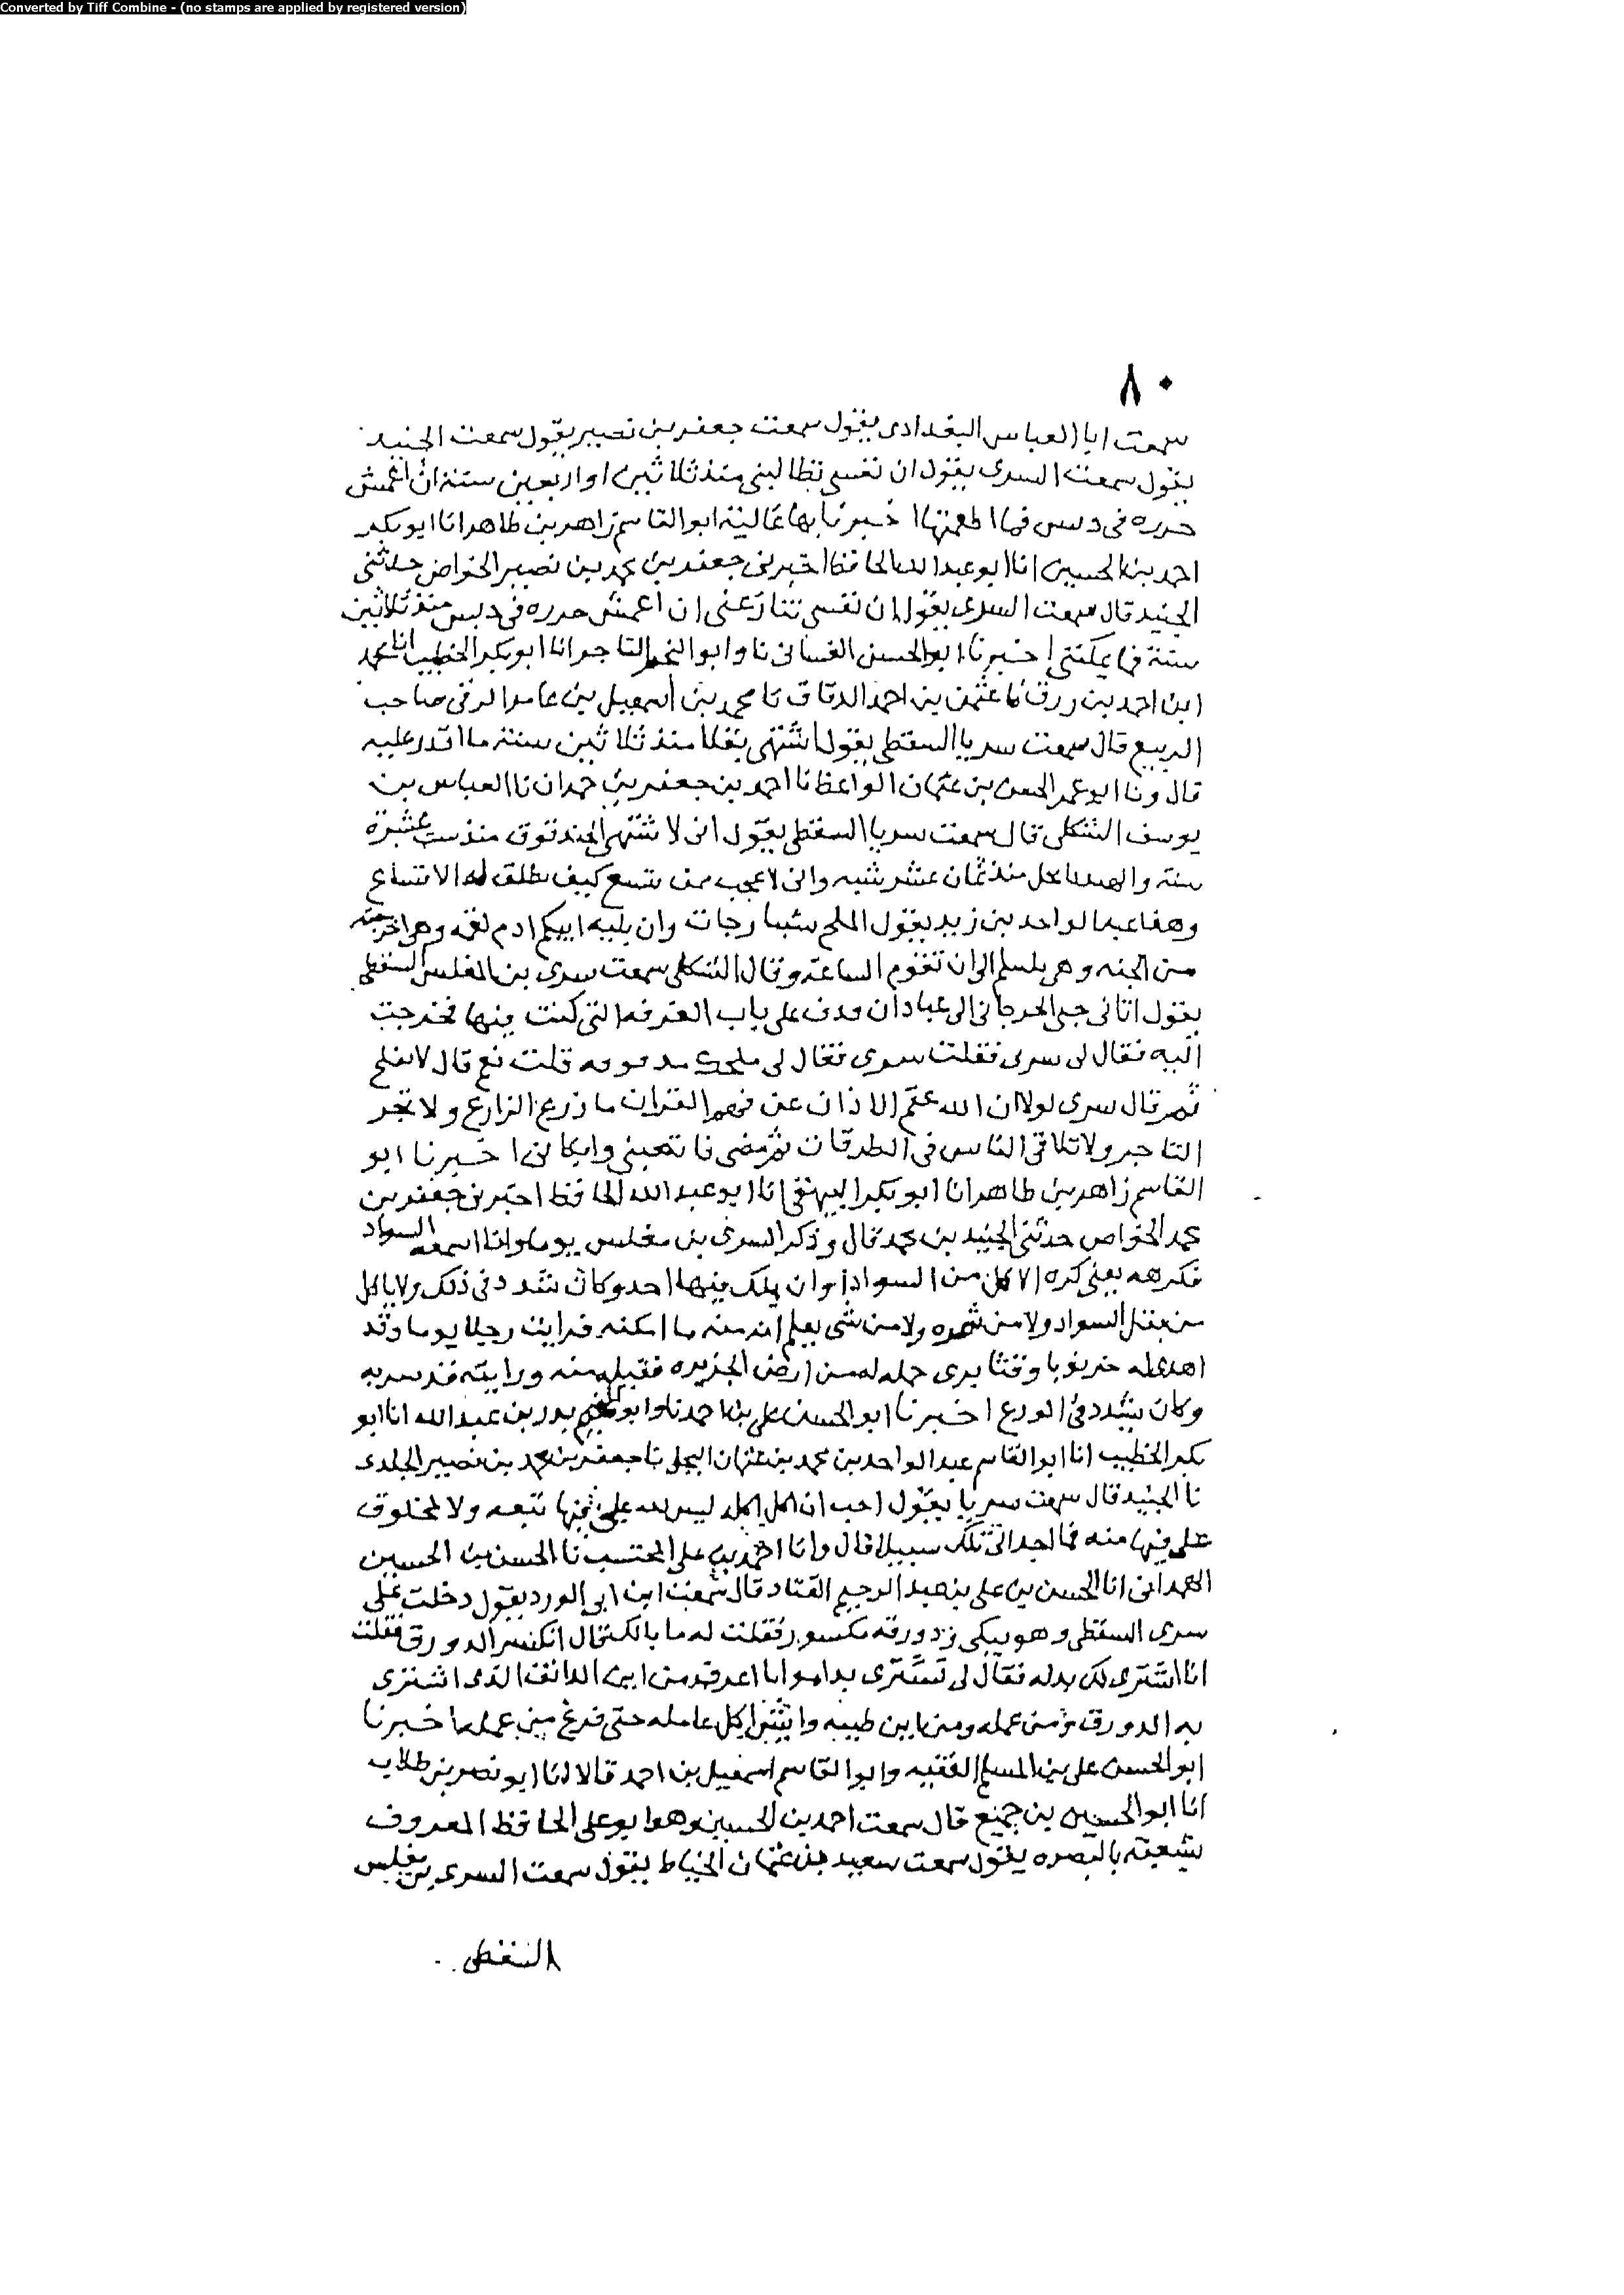 Converted by Tiff Combine - (no stamps are applied by registered version)
٨٠
سمعت ابا العباس البغدادى يقول سمعت جعفر بن نصير يقول سمعت الجنيد
يقول سمعت السرى يقول ان نفسى تطالبنى منذ ثلاثين او اربعين سنة ان اغمس
جزره فى دبس فما اطعمتها اخبرنا بها عالية ابو القاسم زاهر بن طاهر انا ابو بكر
احمد بن الحسين انا ابو عبد الله الحافظ اخبرنى جعفر بن محمد بن نصير الخواص حدثنى
الجنيد قال سمعت السرى يقول ان نفسى تنازعنى ان اغمس جزره فى دبس منذ ثلاثين
سنة فما يمكننى اخبرنا ابو الحسن الغسانى نا وابو النجم التاجر انا ابو بكر الخطيب انا محمد
ابن احمد بن رزق نا عثمن بن احمد الدقاق نا محمد بن اسمعيل بن عامر الرقى صاحب
الربيع قال سمعت سريا السقطى يقول اشتهى بقلا منذ ثلاثين سنة ما اقدر عليه
قال ونا ابو عمر الحسن بن عثمان الواعظ نا احمد بن جعفر بن حمدان نا العباس بن
يوسف الشكلى قال سمعت سريا السقطى يقول انى لاشتهى الجندقوق منذ ست عشرة
سنة والهندبا بخل منذ ثمان عشر سنيه وانى لاعجب ممن يتسع كيف يطلق له الاتساع
وهذا عبد الواحد بن زيد يقول الملح شبارجات وان بليه ابيكم ادم لقمه وهى اخرجته
من الجنه وهى بليتكم الى ان تقوم الساعة وقال الشكلى سمعت سرى بن المغلس السقطى
يقول اتانى الجرجانى الى عبادان فدق على باب الغرفه التى كنت فيها فخرجت
اليه فقال لى سرى فقلت سرى فقال لى ملحك مدقوقه قلت نعم قال لا تفلح
ثم قال سرى لولا ان الله عقم الاذان عن فهم القران ما زرع الزارع ولا تجر
التاجر ولا تلاقى الناس فى الطرقات ثم مضى فاتعبنى وابكانى اخبرنا ابو
القاسم زاهر بن طاهر انا ابو بكر البيهقى انا ابو عبد الله الحافظ اخبرنى جعفر بن
محمد الخواص حدثنى الجنيد بن محمد قال وذكر السرى بن مغلس يوما وانا اسمعه السواد
فكرهه يعنى كره الاكل من السواد او ان يملك فيها احد وكان شدد فى ذلك ولا ياكل
من بقل السواد ولا من ثمره ولا من شى يعلم انه منه ما امكنه فرايت رجلا يوما وقد
اهدى له خرنوبا وقثا برى حمله له من ارض الجزيره فقبله منه ورايته قد سر به
وكان يشدد فى الورع اخبرنا ابو الحسن على بن احمد نا وابو النجم بدر بن عبد الله انا ابو
بكر الخطيب انا ابو القاسم عبد الواحد بن محمد بن عثمان البجلى نا جعفر بن محمد بن نصير الخلدى
نا الجنيد قال سمعت سريا يقول احب ان اكل اكله ليس لله على فيها تبعه ولا لمخلوق
على فيها منه فما اجد الى تلك سبيلا قال وانا احمد بن على المحتسب نا الحسن بن الحسين
الهمدانى انا الحسن بن على بن عبد الرحيم القناد قال سمعت ابن ابى الورد يقول دخلت على
سرى السقطى وهو يبكى ودورقه مكسور فقلت له ما بالك قال انكسر الدورق فقلت
انا اشترى لك بدله فقال لى تشترى بدله وانا اعرف من اين الدانق الذى اشترى
به الدورق ومن عمله ومن اين طينه وايش اكل عامله حتى فرغ من عمله اخبرنا
ابو الحسن على بن المسلم الفقيه وابو القاسم اسمعيل بن احمد قالا انا ابو نصر بن طلاب
انا ابو الحسين بن جميع قال سمعت احمد بن الحسين وهو ابو على الحافظ المعروف
بشعبة بالبصره يقول سمعت سعيد بن عثمان الخياط يقول سمعت السرى بن مغلس
السقطى